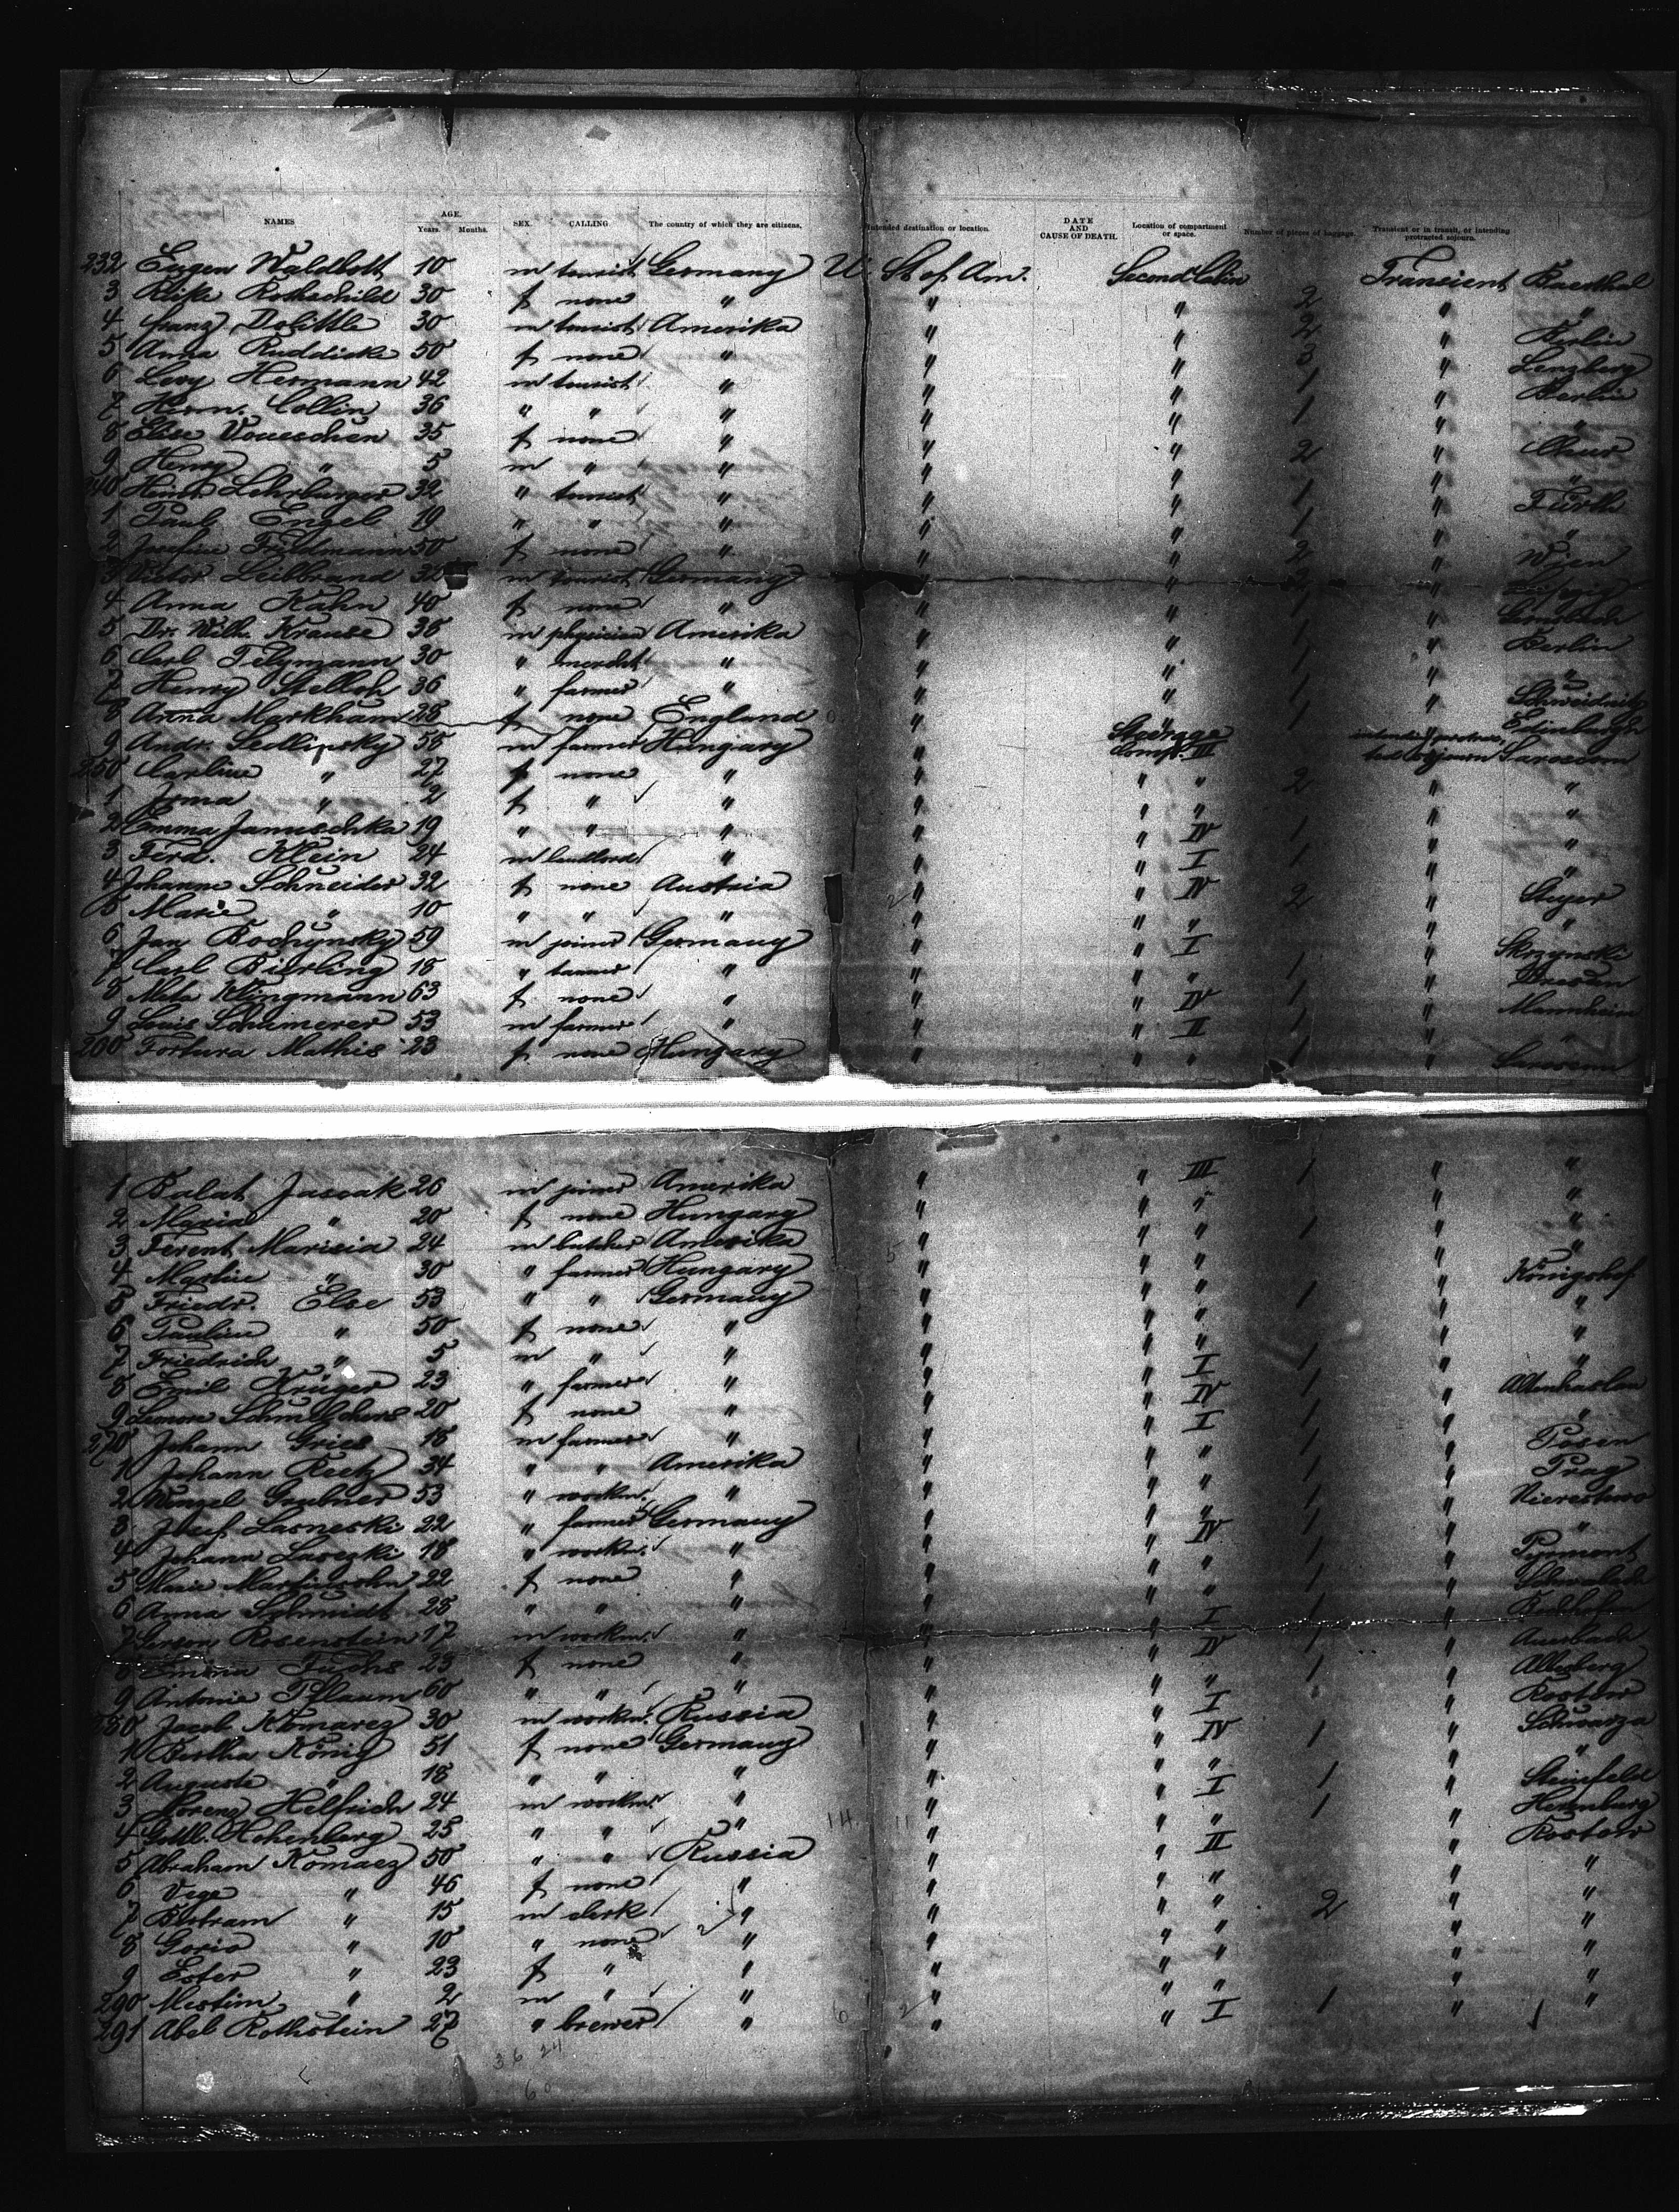 NAMES AGE. Years. Months. SEX. CALLING The country of which they are citizens. Intended destination or location. DATE AND CAUSE OF DEATH. Location of compartment or space. Number of pieces of baggage. Transient or in transit, or intending protracted sojourn.
232 Eugen Waldbott 10 m tourist Germany U. St. of Am. Second Cabin Transient
3 Rosthschild 30 f none " " " 2 " "
4 Franz Dolittle 30 m tourist Amerika " " 2 " Berlin
5 Anna Ruddick 50 f none " " " 3 " Lenzberg
6 Levy Hermann 42 m tourist " " " 1 " Berlin
7 Herm. Collin 36 " " " " " 1 " "
8 Else 35 f none " " " 2 " Chur
9 Henry " 5 m " " " " " "
240 Heinr. Lehrburger 32 " tourist " " " 1 " Fürth
1 Paul Engel 19 " " " " " 1 " "
2 Josefine Friedmann 50 f none " " " 2 " Wien
3 Victor Leibbrand 32 m tourist Germany " " 2 " Leipzig
4 Anna Kahn 40 f none " " " 1 "
5 Dr. Wilh. Krause 38 m physician Amerika " " 1 " Berlin
6 Carl 30 " mercht. " " " 1 " "
7 Henry Stelloh 36 " farmer " " " 1 " Schweidnitz
8 Anna Markham 28 f none England " " 1 " Edinburgh
9 Andr. Sedlipsky 58 m farmer Hungary " Steerage Comp. III intending protracted sojourn
250 Carline " 27 f none " " " " 2 " "
1 Irma " 2 f " " " " " " "
2 Emma Januschka 19 " " " " " IV 1 " "
3 Ferd. Klein 24 m landlord " " " I 1 " "
4 Johanne Schneider 32 f none Austria " " IV 2 " Steyer
5 Marie " 10 " " " " " " " "
6 Jan Bochynsky 59 m joiner Germany " " I " Skrzynski
7 Carl Bierling 18 " tanner " " " " 1 " Dresden
8 Meta Klingmann 63 f none " " " IV 1 " Mannheim
9 Louis Schumerer 53 m farmer " " " II 1 " "
260 Fortura Mathis 23 f none Hungary " " " 1 "
1 Balat Jascak 26 m joiner Amerika " " III 1 " "
2 Maria " 20 f none Hungary " " " " "
3 Ferent Marisia 24 m butcher Amerika " " " 1 " "
4 " 30 " farmer Hungary " " " " "
5 Friedr. Else 53 " " Germany " " " 1 " Königshof
6 Pauline " 50 f none " " " " " "
7 Friedrich " 5 m " " " " " " "
8 Emil Krüger 23 " farmer " " " I 1 " "
9 20 f none " " " IV 1 " Altenhaslau
270 Johann Gries 18 m farmer " " " I 1 " "
1 Johann Reetz 34 " " Amerika " " " 1 " Posen
2 Wenzel Grubner 53 " workm. " " " " 1 " Prag
3 Josef Lasneski 22 " farmer Germany " " " 1 "
4 Johann 18 " workm. " " " IV 1 " "
5 Marie 22 f none " " " " 1 " Pyrmont
6 Anna Schmidt 28 " " " " " " 1 "
7 Gerson Rosenstein 17 m workm. " " " I 1 "
8 Emma Fuchs 23 f none " " " IV 1 " Auerbach
9 Antonie Pflaum 60 " " " " " " 1 "
280 Jacob Komarez 30 m workm. Russia " " I " Rostow
1 Bertha König 51 f none Germany " " IV 1 " Schwarza
2 Auguste " 18 " " " " " " " "
3 Lorenz Helfrich 24 m workm. " " " I 1 " Steinfeld
4 Gottl. Hohenberg 25 " " " " " " 1 "
5 Abraham Komarez 50 " " Russia " " II " Rostow
6 Vege " 46 f none " " " " " "
7 Bertram " 15 m clerk " " " " 2 " "
8 Gorio " 10 " none " " " " " "
9 Ester " 23 f " " " " " " "
290 " 2 m " " " " " " "
291 Abel Rothstein 27 " brewer " " " I 1 "
36 24
60